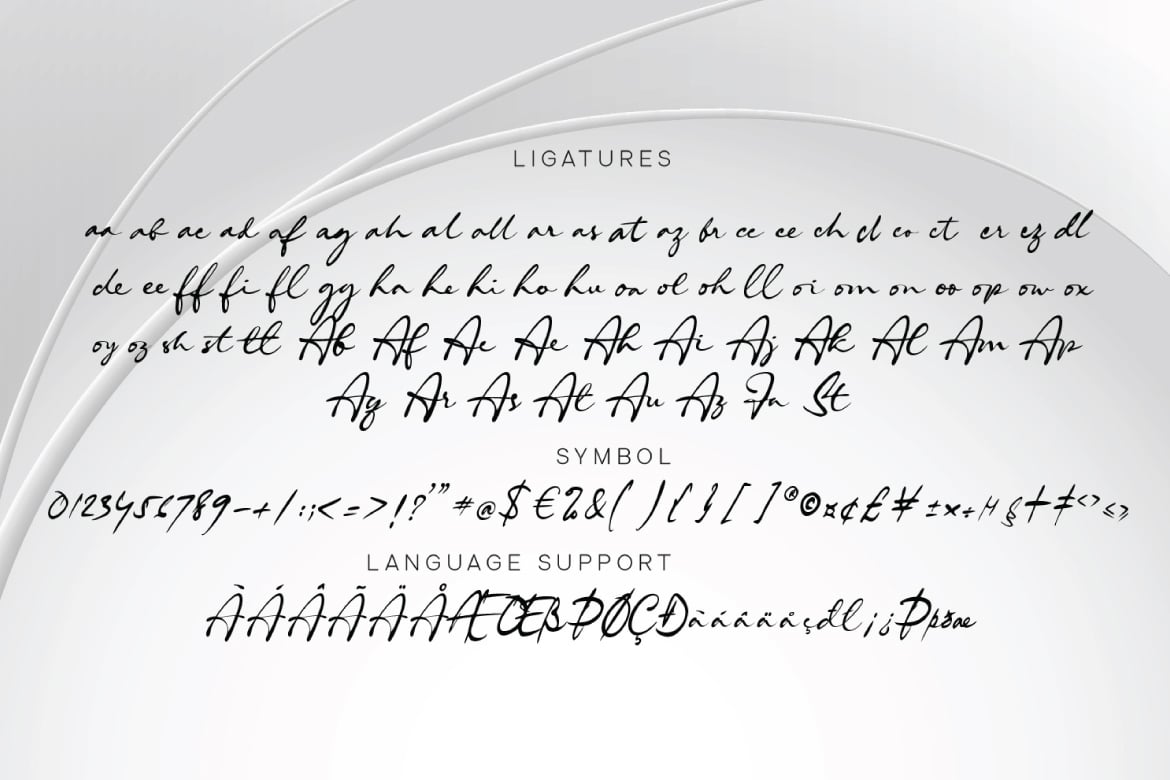 LIGATURES
aa ab ae ad af ag ah al all an as at az br cc ce ch cl co ct er ez dl
de ee ff fi fl gg ha he hi ho hu oa ol oh ll oi om on oo op ow ox
oy oz sh st tt Ab Af Ac Ae Ah Ai Aj Ak Al Am Ap
Ar As At Au Az Fa St
SYMBOL
0123456789-+/:;<=>!?'"#@$€&(){}[]®©¤¢£¥±×÷§†‡<>≤≥
LANGUAGE SUPPORT
ÀÁÂÃÄÅÆŒßÞØÇÐàáâäåçđł¡¿Þþæ